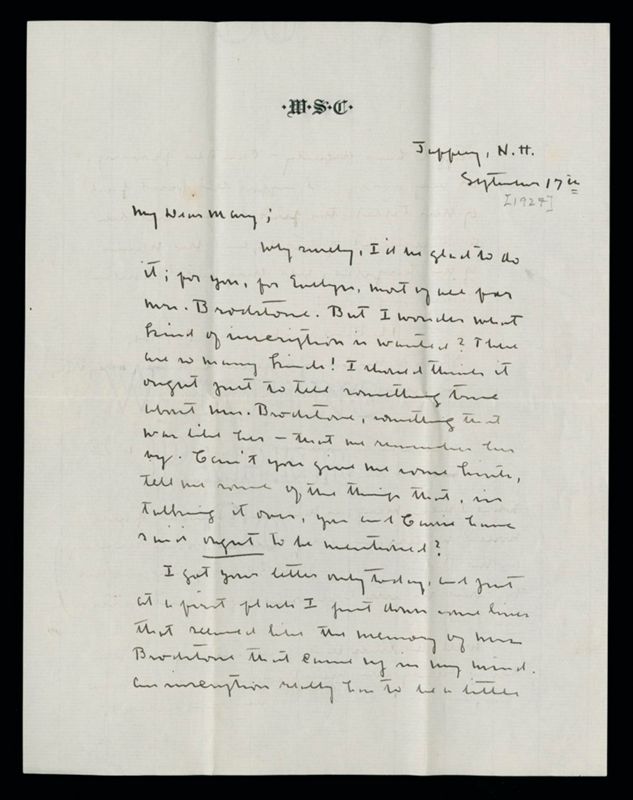 ·W·S·C·
Jaffrey, N.H.
September 17th
[1924]
My Dear Mary;
Why surely, I'd be glad to do
it; for you, for Evelyn, most of all for
Mrs. Brodstone. But I wonder what
kind of inscription is wanted? There
are so many kinds! I should think it
ought just to tell something true
about Mrs. Brodstone, something that
was like her - that we remember her
by. Can't you give me some hints,
tell me some of the things that, in
talking it over, you and Carrie have
said ought to be mentioned?
I got your letter only today, and just
at a first flash I put down some lines
that seemed like the memory of Mrs
Brodstone that came up in my mind.
An inscription really has to be a little